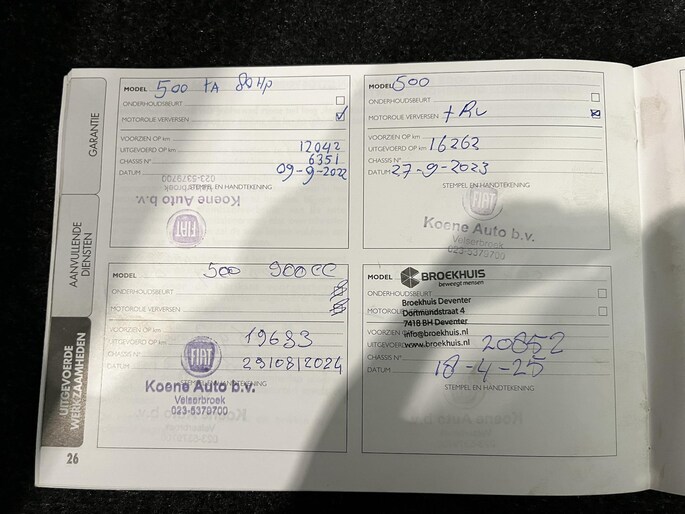 GARANTIE
AANVULLENDE
DIENSTEN
UITGEVOERDE
WERKZAAMHEDEN
26
MODEL 500 TA 80Hp
ONDERHOUDSBEURT
MOTOROLIE VERVERSEN
VOORZIEN OP km
UITGEVOERD OP km 12042
CHASSIS N° 6351
DATUM 09-9-2022
STEMPEL EN HANDTEKENING
Koene Auto b.v.
Velserbroek
023-5379700
FIAT
MODEL 500
ONDERHOUDSBEURT
MOTOROLIE VERVERSEN
VOORZIEN OP km
UITGEVOERD OP km 16262
CHASSIS N°
DATUM 27-9-2023
STEMPEL EN HANDTEKENING
FIAT
Koene Auto b.v.
Velserbroek
023-5379700
MODEL 500 900CC
ONDERHOUDSBEURT
MOTOROLIE VERVERSEN
VOORZIEN OP km
UITGEVOERD OP km 19683
CHASSIS N°
DATUM 29/08/2024
STEMPEL EN HANDTEKENING
FIAT
Koene Auto b.v.
Velserbroek
023-5379700
MODEL BROEKHUIS
beweegt mensen
ONDERHOUDSBEURT
Broekhuis Deventer
MOTOROLIE
Dortmundstraat 4
7418 BH Deventer
VOORZIEN
info@broekhuis.nl
UITGEVOERD
www.broekhuis.nl
20852
CHASSIS N°
DATUM 18-4-25
STEMPEL EN HANDTEKENING